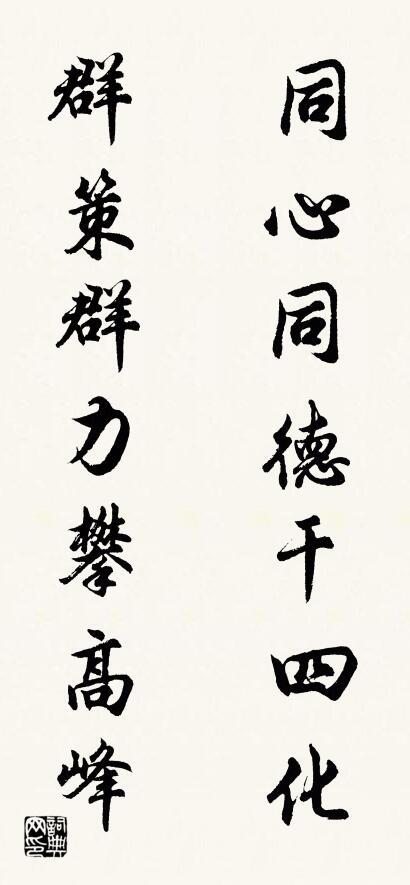 同心同德干四化
群策群力攀高峰
詞典网印